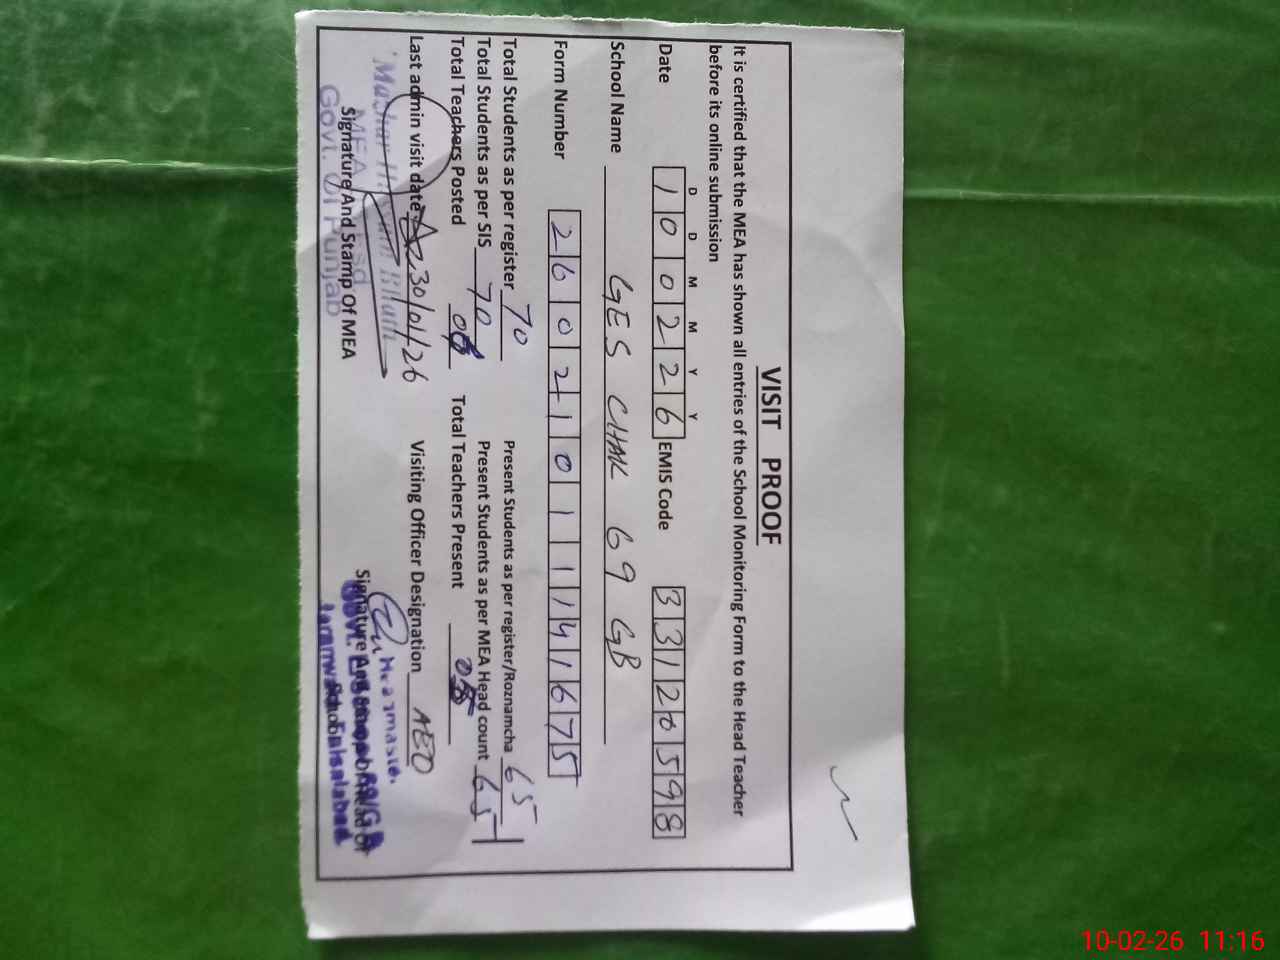 VISIT PROOF
It is certified that the MEA has shown all entries of the School Monitoring Form to the Head Teacher
before its online submission
D D M M Y Y
Date 1 0 0 2 2 6 EMIS Code 3 3 1 2 0 5 9 8
School Name GES CHAK 69 GB
Form Number 2 6 0 2 1 0 1 1 1 4 1 6 7 5
Total Students as per register 70 Present Students as per register/Roznamcha 65
Total Students as per SIS 70 Present Students as per MEA Head count 65
Total Teachers Posted Total Teachers Present
Last admin visit date 30/01/26 Visiting Officer Designation AEO
MEA
Signature And Stamp Of MEA
Govt. Of Punjab
Signature And
10-02-26 11:16